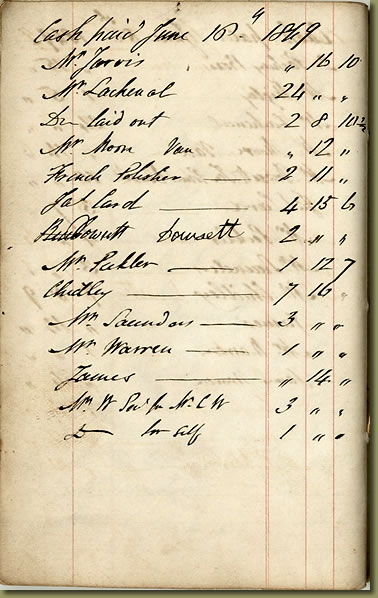 Cash paid June 16th 1849
Mr Jarvis " 16 10
Mr Lachenal 24 " "
Do laid out 2 8 10½
Mr Moon Van " 12 "
French Polisher 2 11 "
Jas Card 4 15 6
Dowsett 2 " "
Mr Pichler 1 12 7
Chidley 7 16 "
Mr Saunders 3 " "
Mr Warren 1 " "
James " 14 "
Mr W for Mr C W 3 " "
Do for self 1 " "